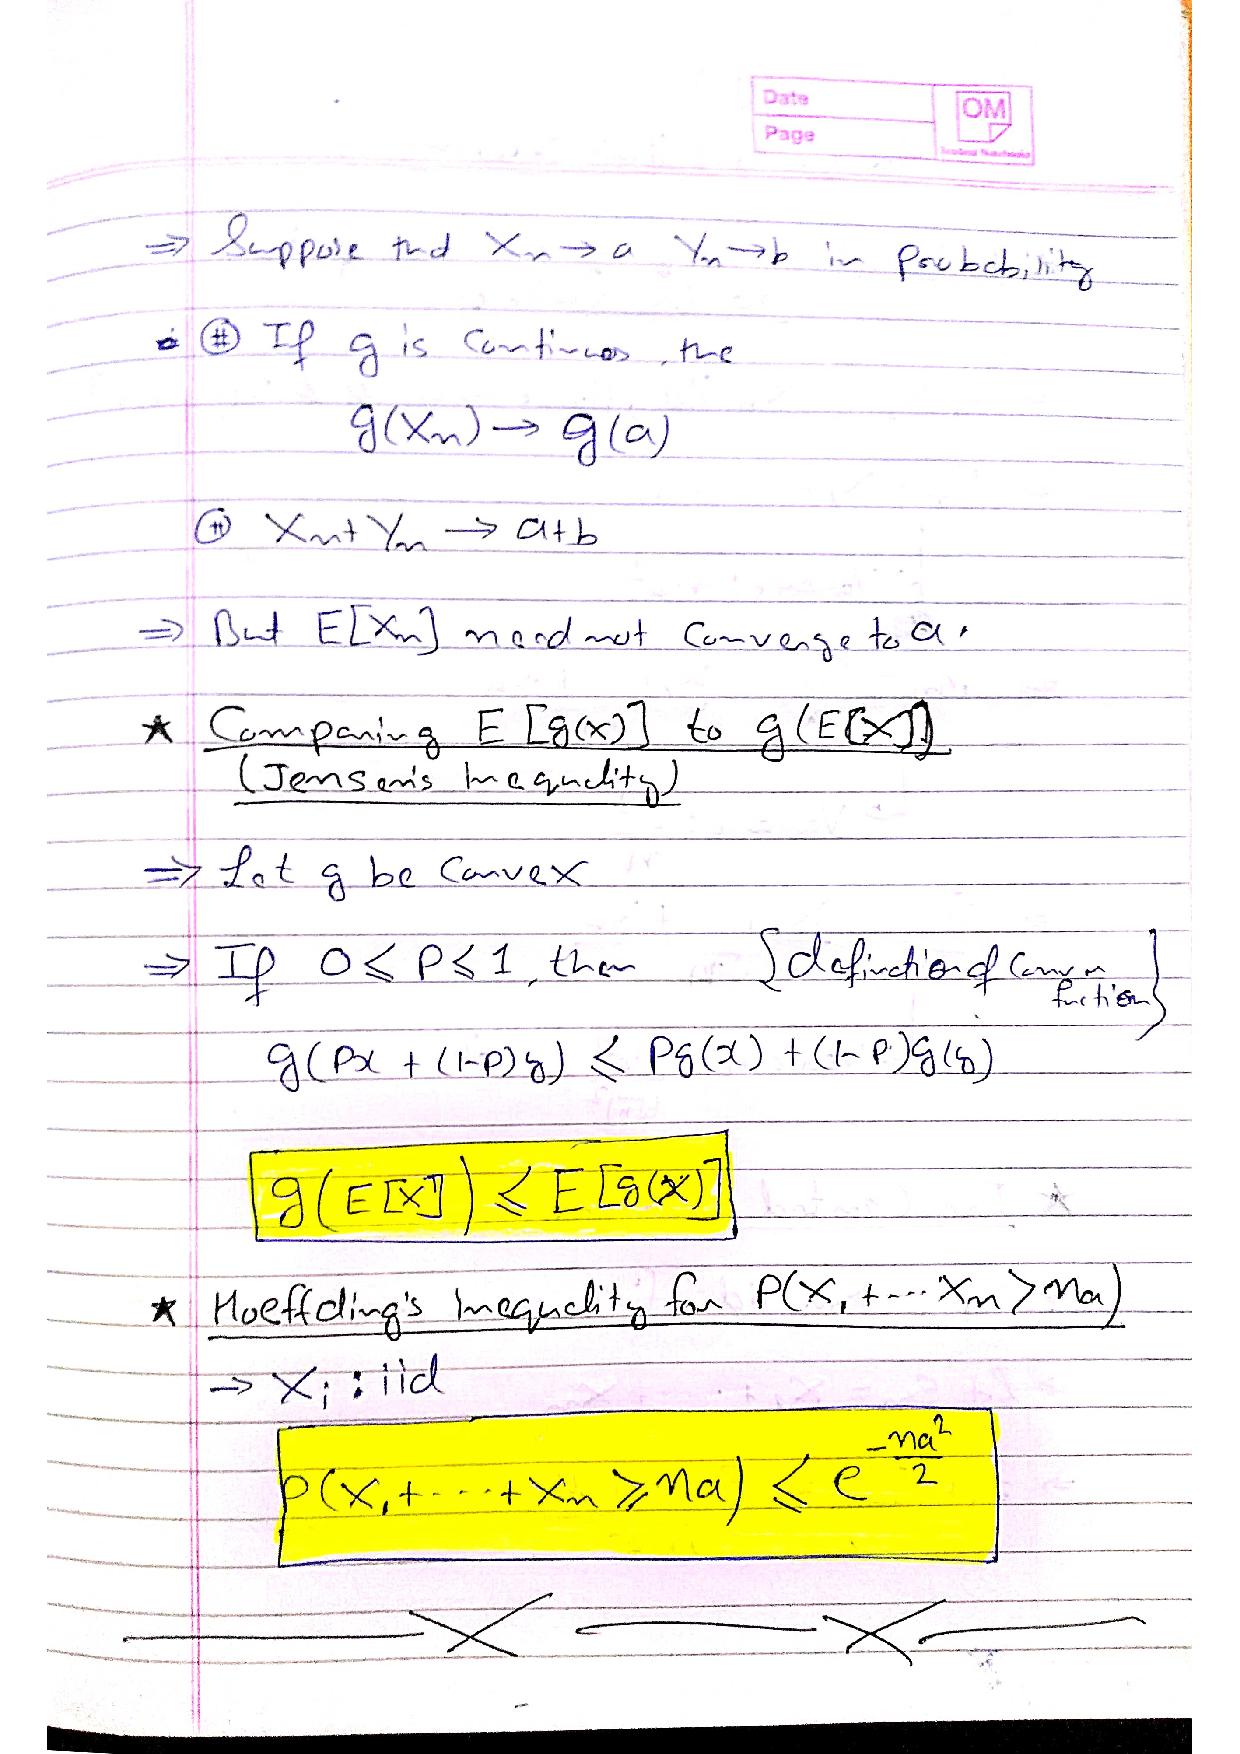 Date
Page
OM
⇒ Suppose that Xn → a Yn → b in Probability
# If g is Continuos, the
g(Xn) → g(a)
# Xn + Yn → a+b
⇒ But E[Xn] need not Converge to a.
★ Comparing E[g(x)] to g(E[X])
(Jensen's Inequality)
⇒ Let g be Convex
⇒ If 0 ≤ P ≤ 1, then {definction of Convex
fuction}
g(Px + (1-P)y) ≤ Pg(x) + (1-P)g(y)
g(E[X]) ≤ E[g(x)]
★ Hoeffding's Inequality for P(X₁ + ... Xn > na)
→ Xi : iid
P(X₁ + .... + Xn ≥ na) ≤ e^(-na²/2)